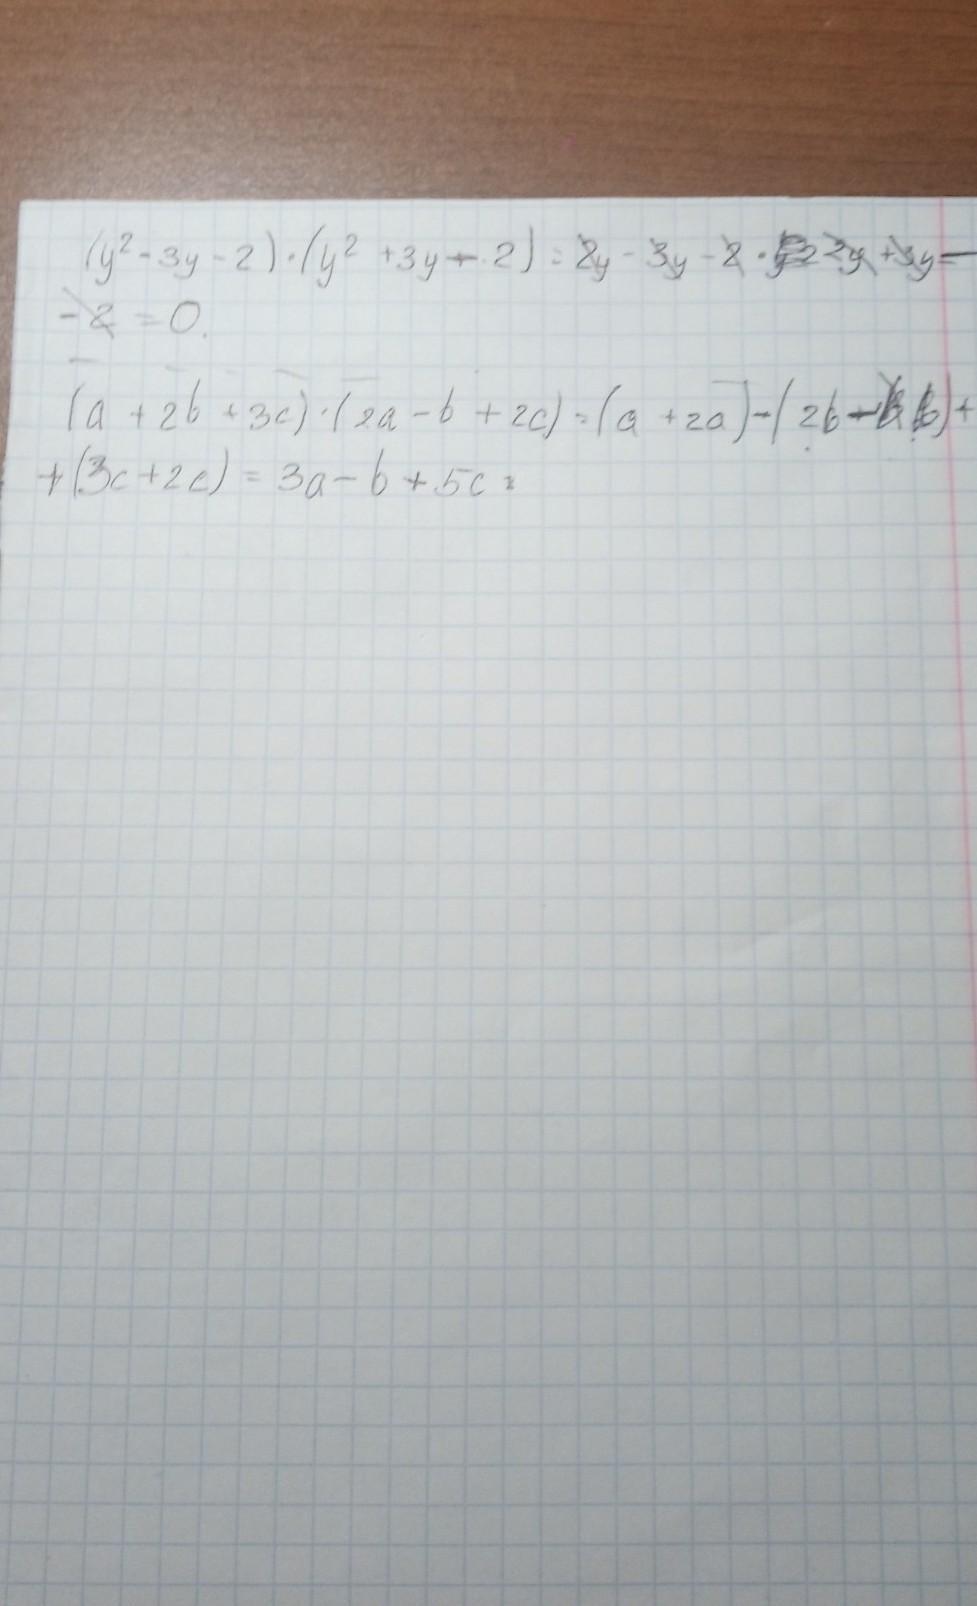 (y² - 3y - 2) · (y² + 3y - 2) = 2y - 3y - 2 · 2y + 3y -
- 2 = 0.
(a + 2b + 3c) · (2a - b + 2c) = (a + 2a) - (2b - b) +
+ (3c + 2c) = 3a - b + 5c =